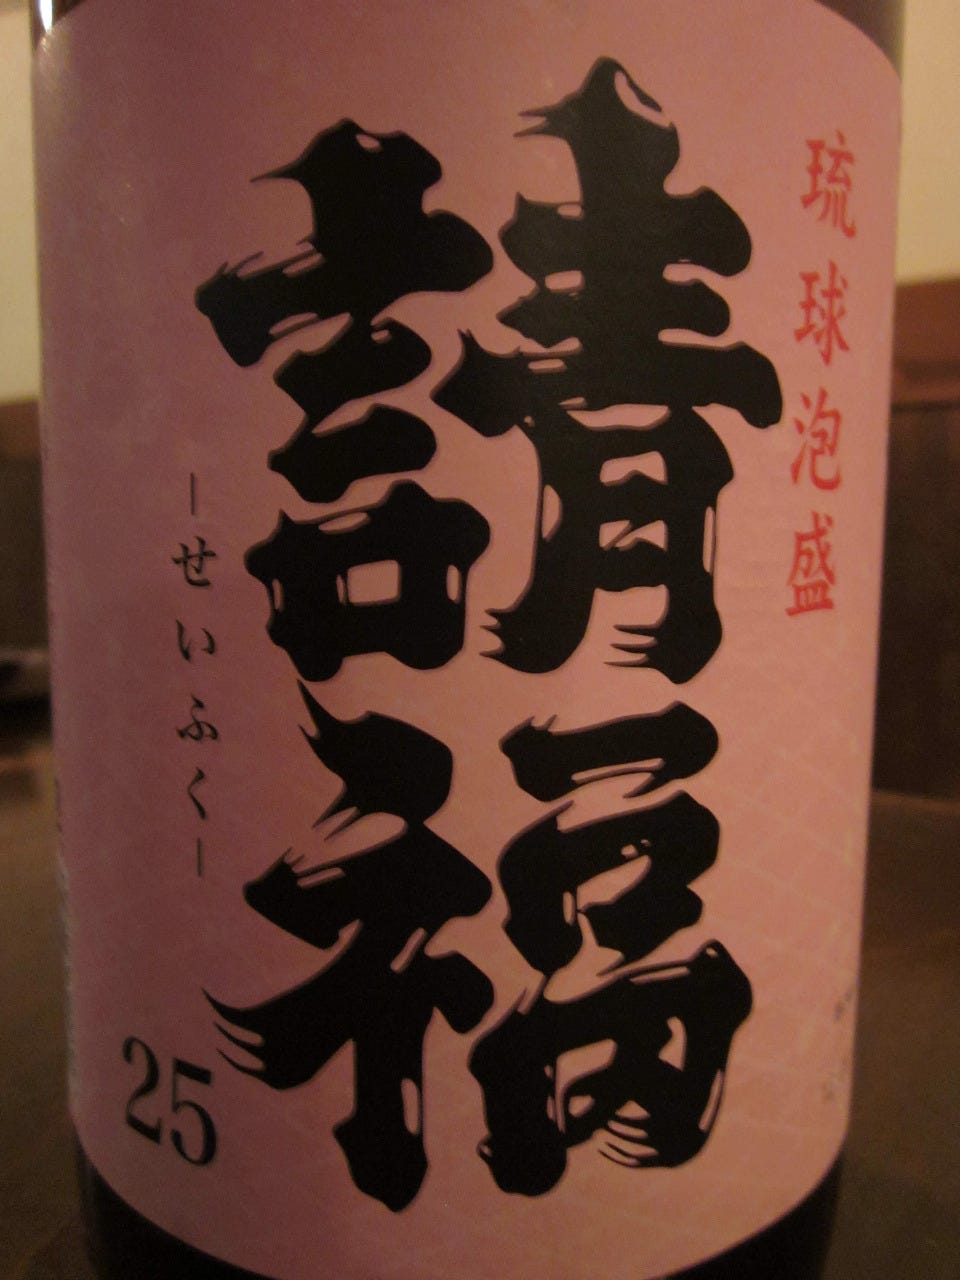 琉球泡盛
請福
-せいふく-
25